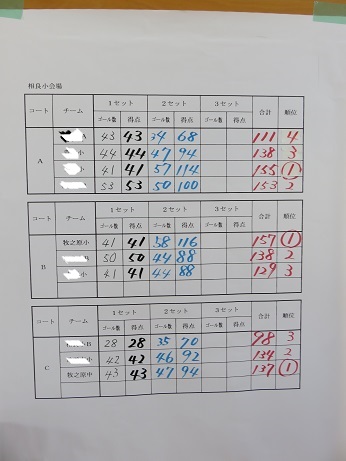 相良小会場
コート チーム 1セット 2セット 3セット 合計 順位
ゴール数 得点 ゴール数 得点 ゴール数 得点
A 43 43 34 68 111 4
小 44 44 47 94 138 3
小 41 41 57 114 155 1
A
53 53 50 100 153 2
コート チーム 1セット 2セット 3セット 合計 順位
ゴール数 得点 ゴール数 得点 ゴール数 得点
牧之原小 41 41 58 116 157 1
B
50 50 44 88 138 2
小 41 41 44 88 129 3
コート チーム 1セット 2セット 3セット 合計 順位
ゴール数 得点 ゴール数 得点 ゴール数 得点
B 28 28 35 70 98 3
C 42 42 46 92 134 2
牧之原中 43 43 47 94 137 1